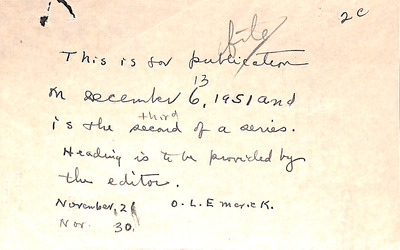 file
2c
This is for publication
13
on December 6, 1951 and
third
is the second of a series.
Heading is to be provided by
the editor.
November, 26 O. L. Emerick.
Nov. 30.